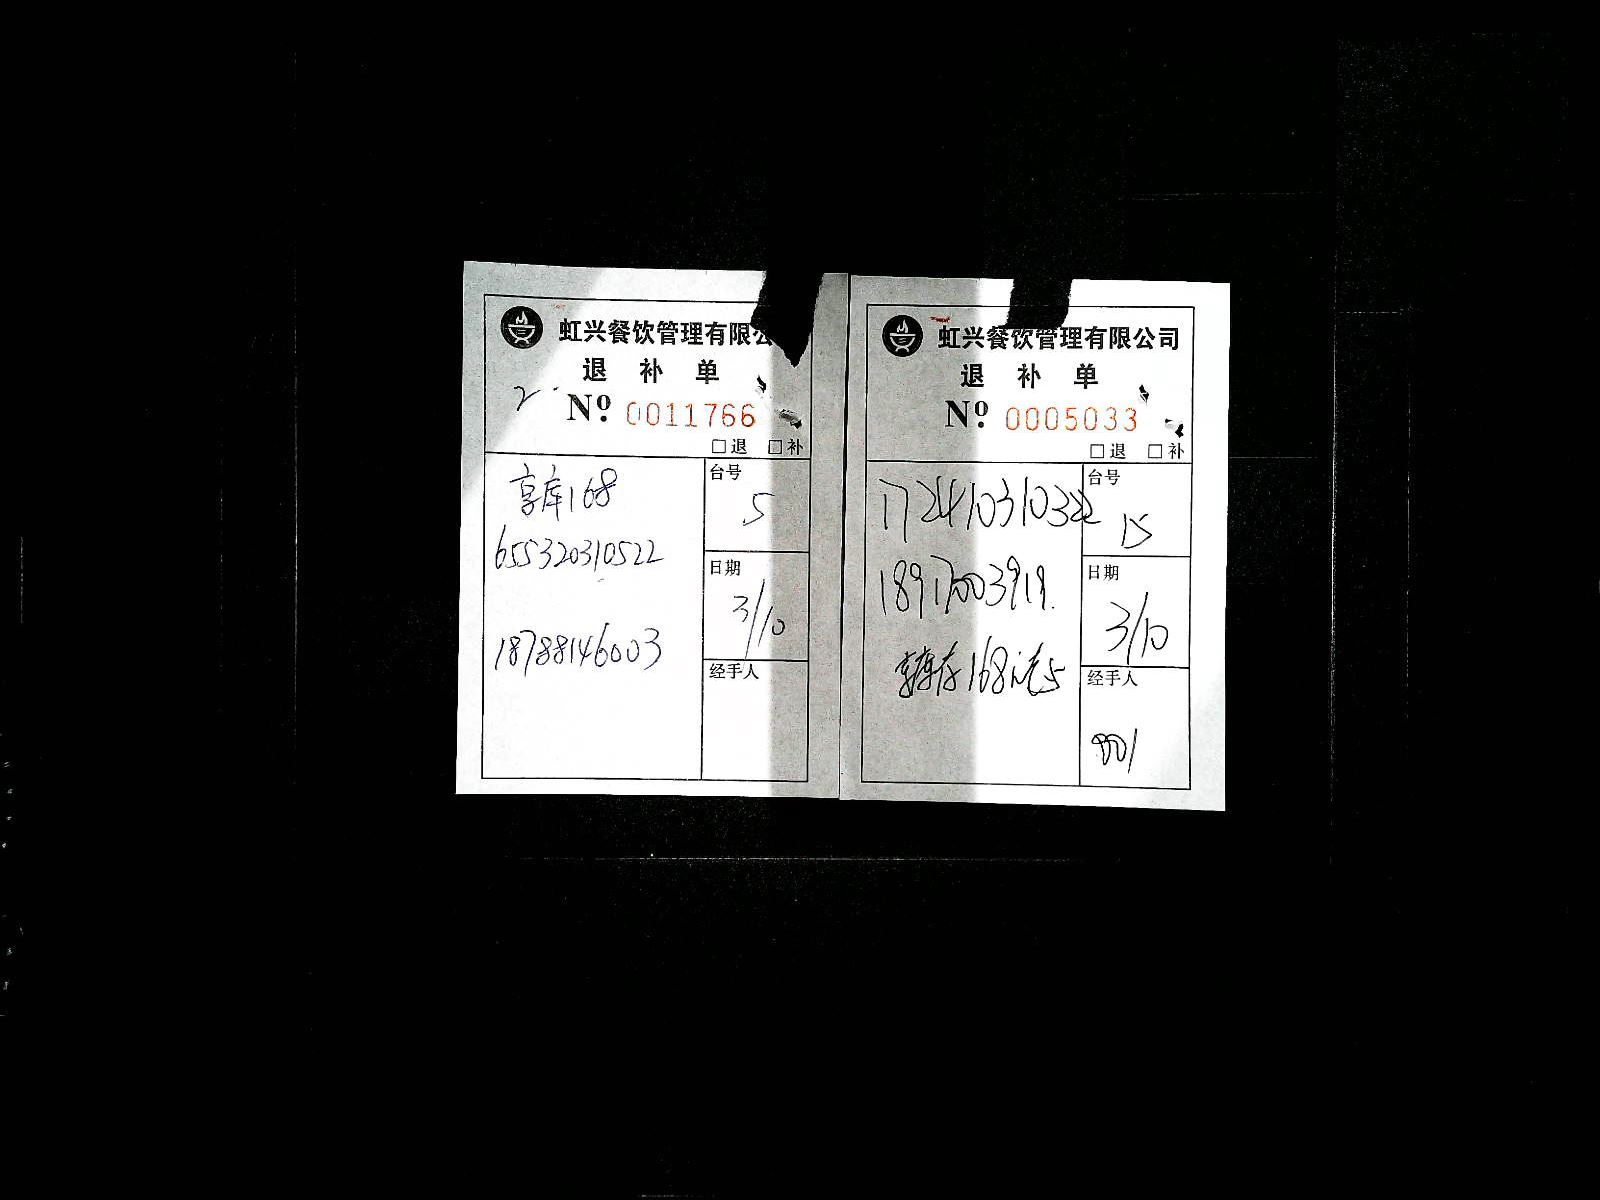 虹兴餐饮管理有限公
退 补 单
2
Nº 0011766
□退 □补
享库168
655320310522
18788146003
台号
5
日期
3/10
经手人
虹兴餐饮管理有限公司
退 补 单
Nº 0005033
□退 □补
18917003919.
168
台号
15
日期
3/10
经手人
001